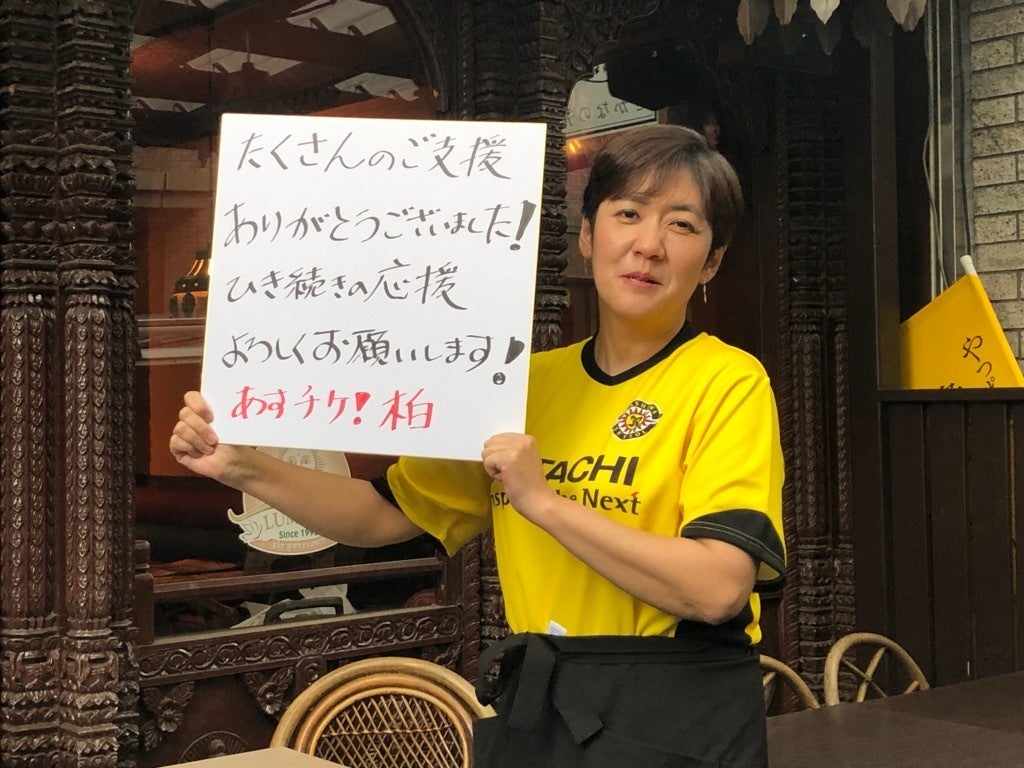 たくさんのご支援
ありがとうございました!
ひき続きの応援
よろしくお願いします!
あすチケ! 柏
TACHI
Next
Since 199
やっぱ